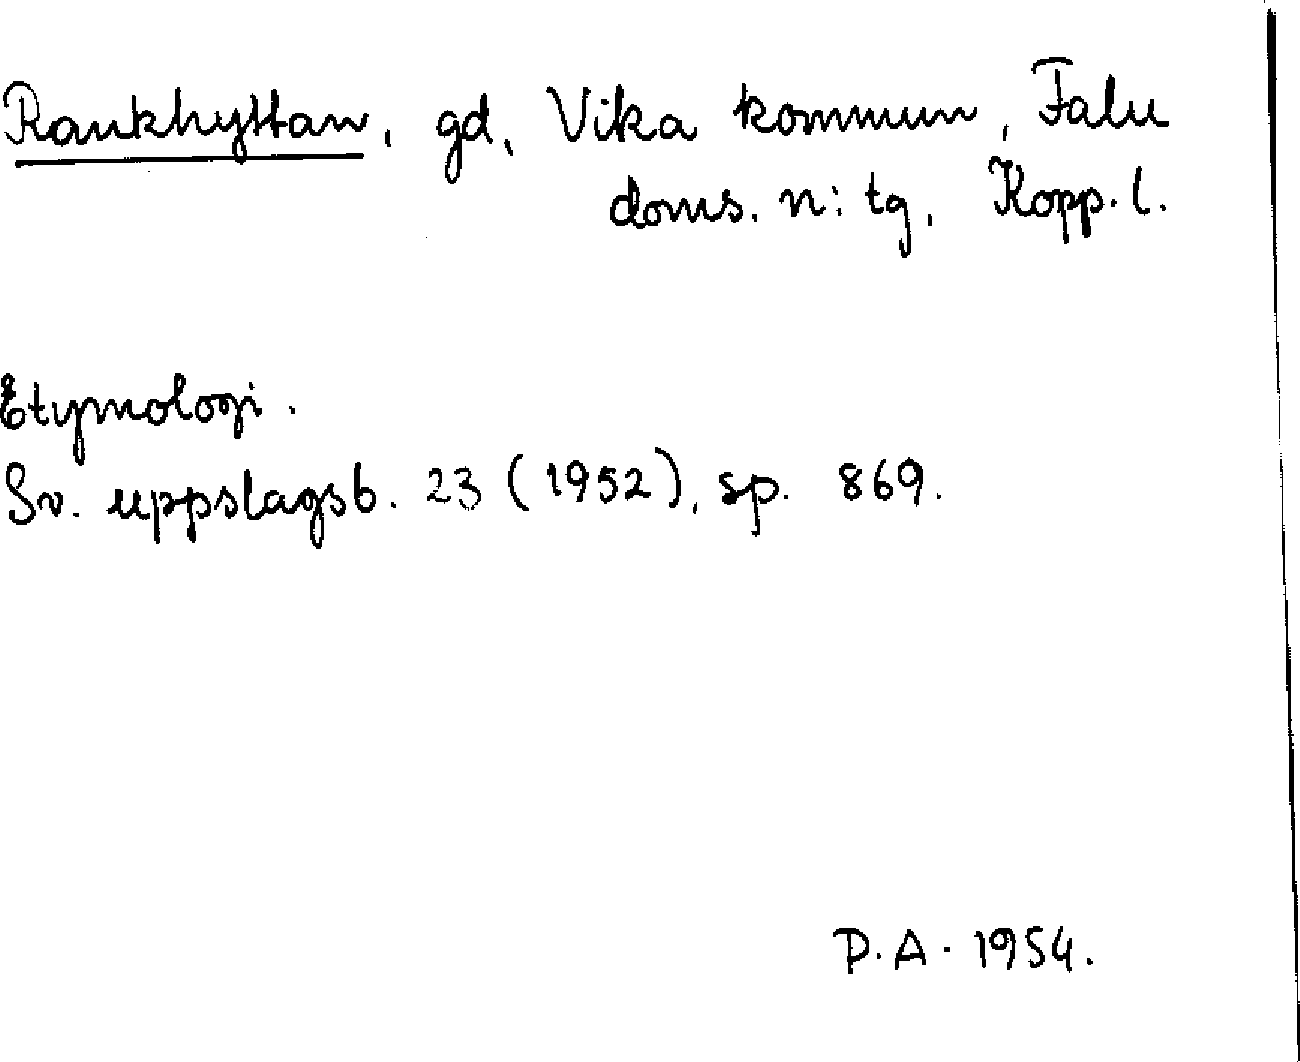 Rankhyttan, gd, Vika kommun, Falu
doms. n:tg, Kopp. l.
Etymologi.
Sv. uppslagsb. 23 (1952), sp. 869.
P.A. 1954.